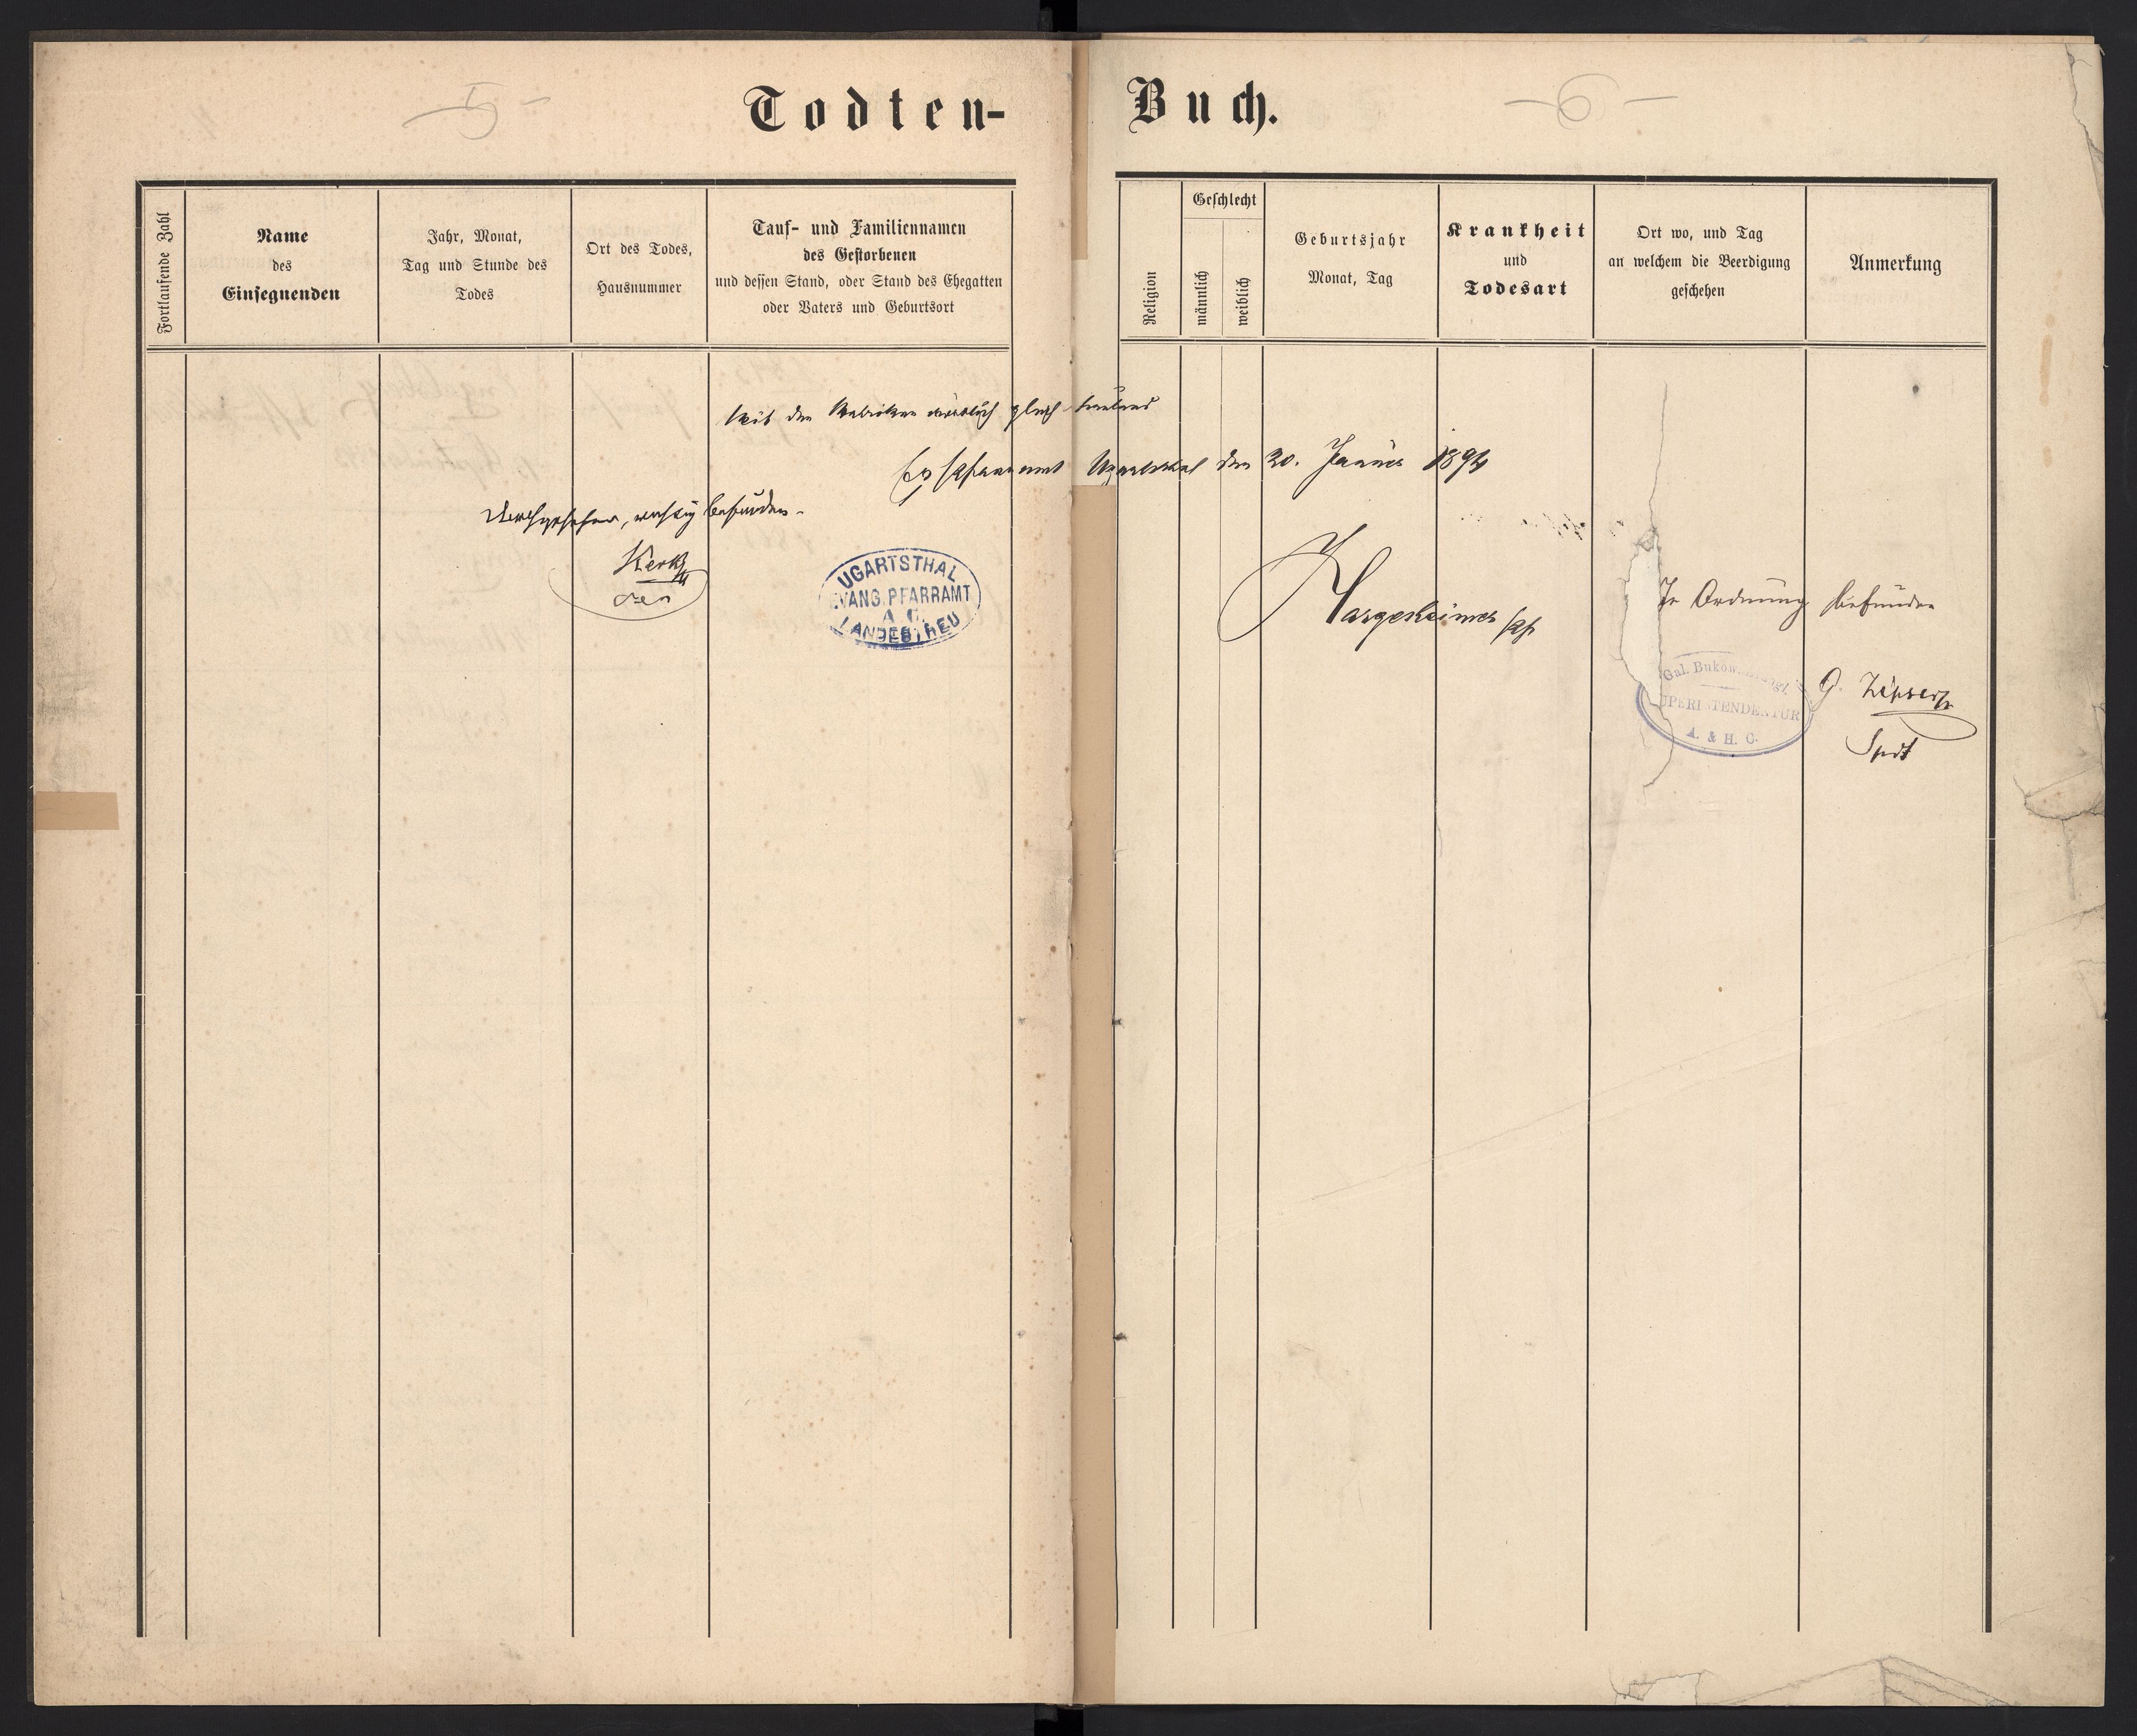 5 -
Todten-
Fortlaufende Zahl
Name
des
Einsegnenden
Jahr, Monat,
Tag und Stunde des
Todes
Ort des Todes,
Hausnummer
Tauf- und Familiennamen
des Gestorbenen
und dessen Stand, oder Stand des Ehegatten
oder Vaters und Geburtsort
Mit den Matriken wörtlich gleich-lautend
Ev Pfarramt Ugartsthal den 20. Januar 1894
Durchgesehen, richtig befunden.
Kerk
UGARTSTHAL
EVANG. PFARRAMT
A. C.
LANDESTREU
Buch.
- 6 -
Religion
Geschlecht
männlich
weiblich
Geburtsjahr
Monat, Tag
Krankheit
und
Todesart
Ort wo, und Tag
an welchem die Beerdigung
geschehen
Anmerkung
Hargesheimer
In Ordnung befunden
Gal. Bukow.
SUPERINTENDENTUR
A. & H. C.
G. Zipser
Spdt